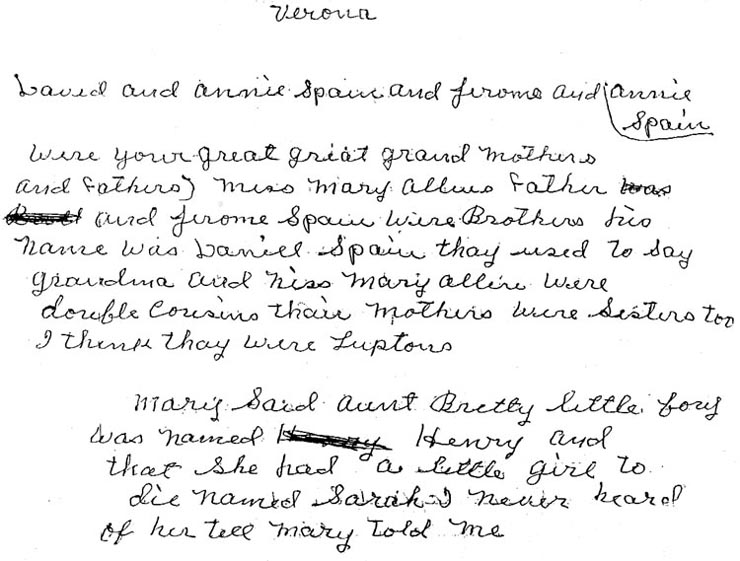 Verona
David and annie Spain and Jerome and annie
Spain
were your great great grand Mothers
and Fathers) Miss Mary Allens Father was
and Jerome Spain were Brothers his
name was Daniel Spain thay used to say
grandma and Miss Mary allen were
double Cousins thair Mothers were Sisters too
I think thay were Luptons
Mary Said aunt Bretty little boy
was named Henry and
that She had a little girl to
die named Sarah I never heard
of her tell Mary Told Me